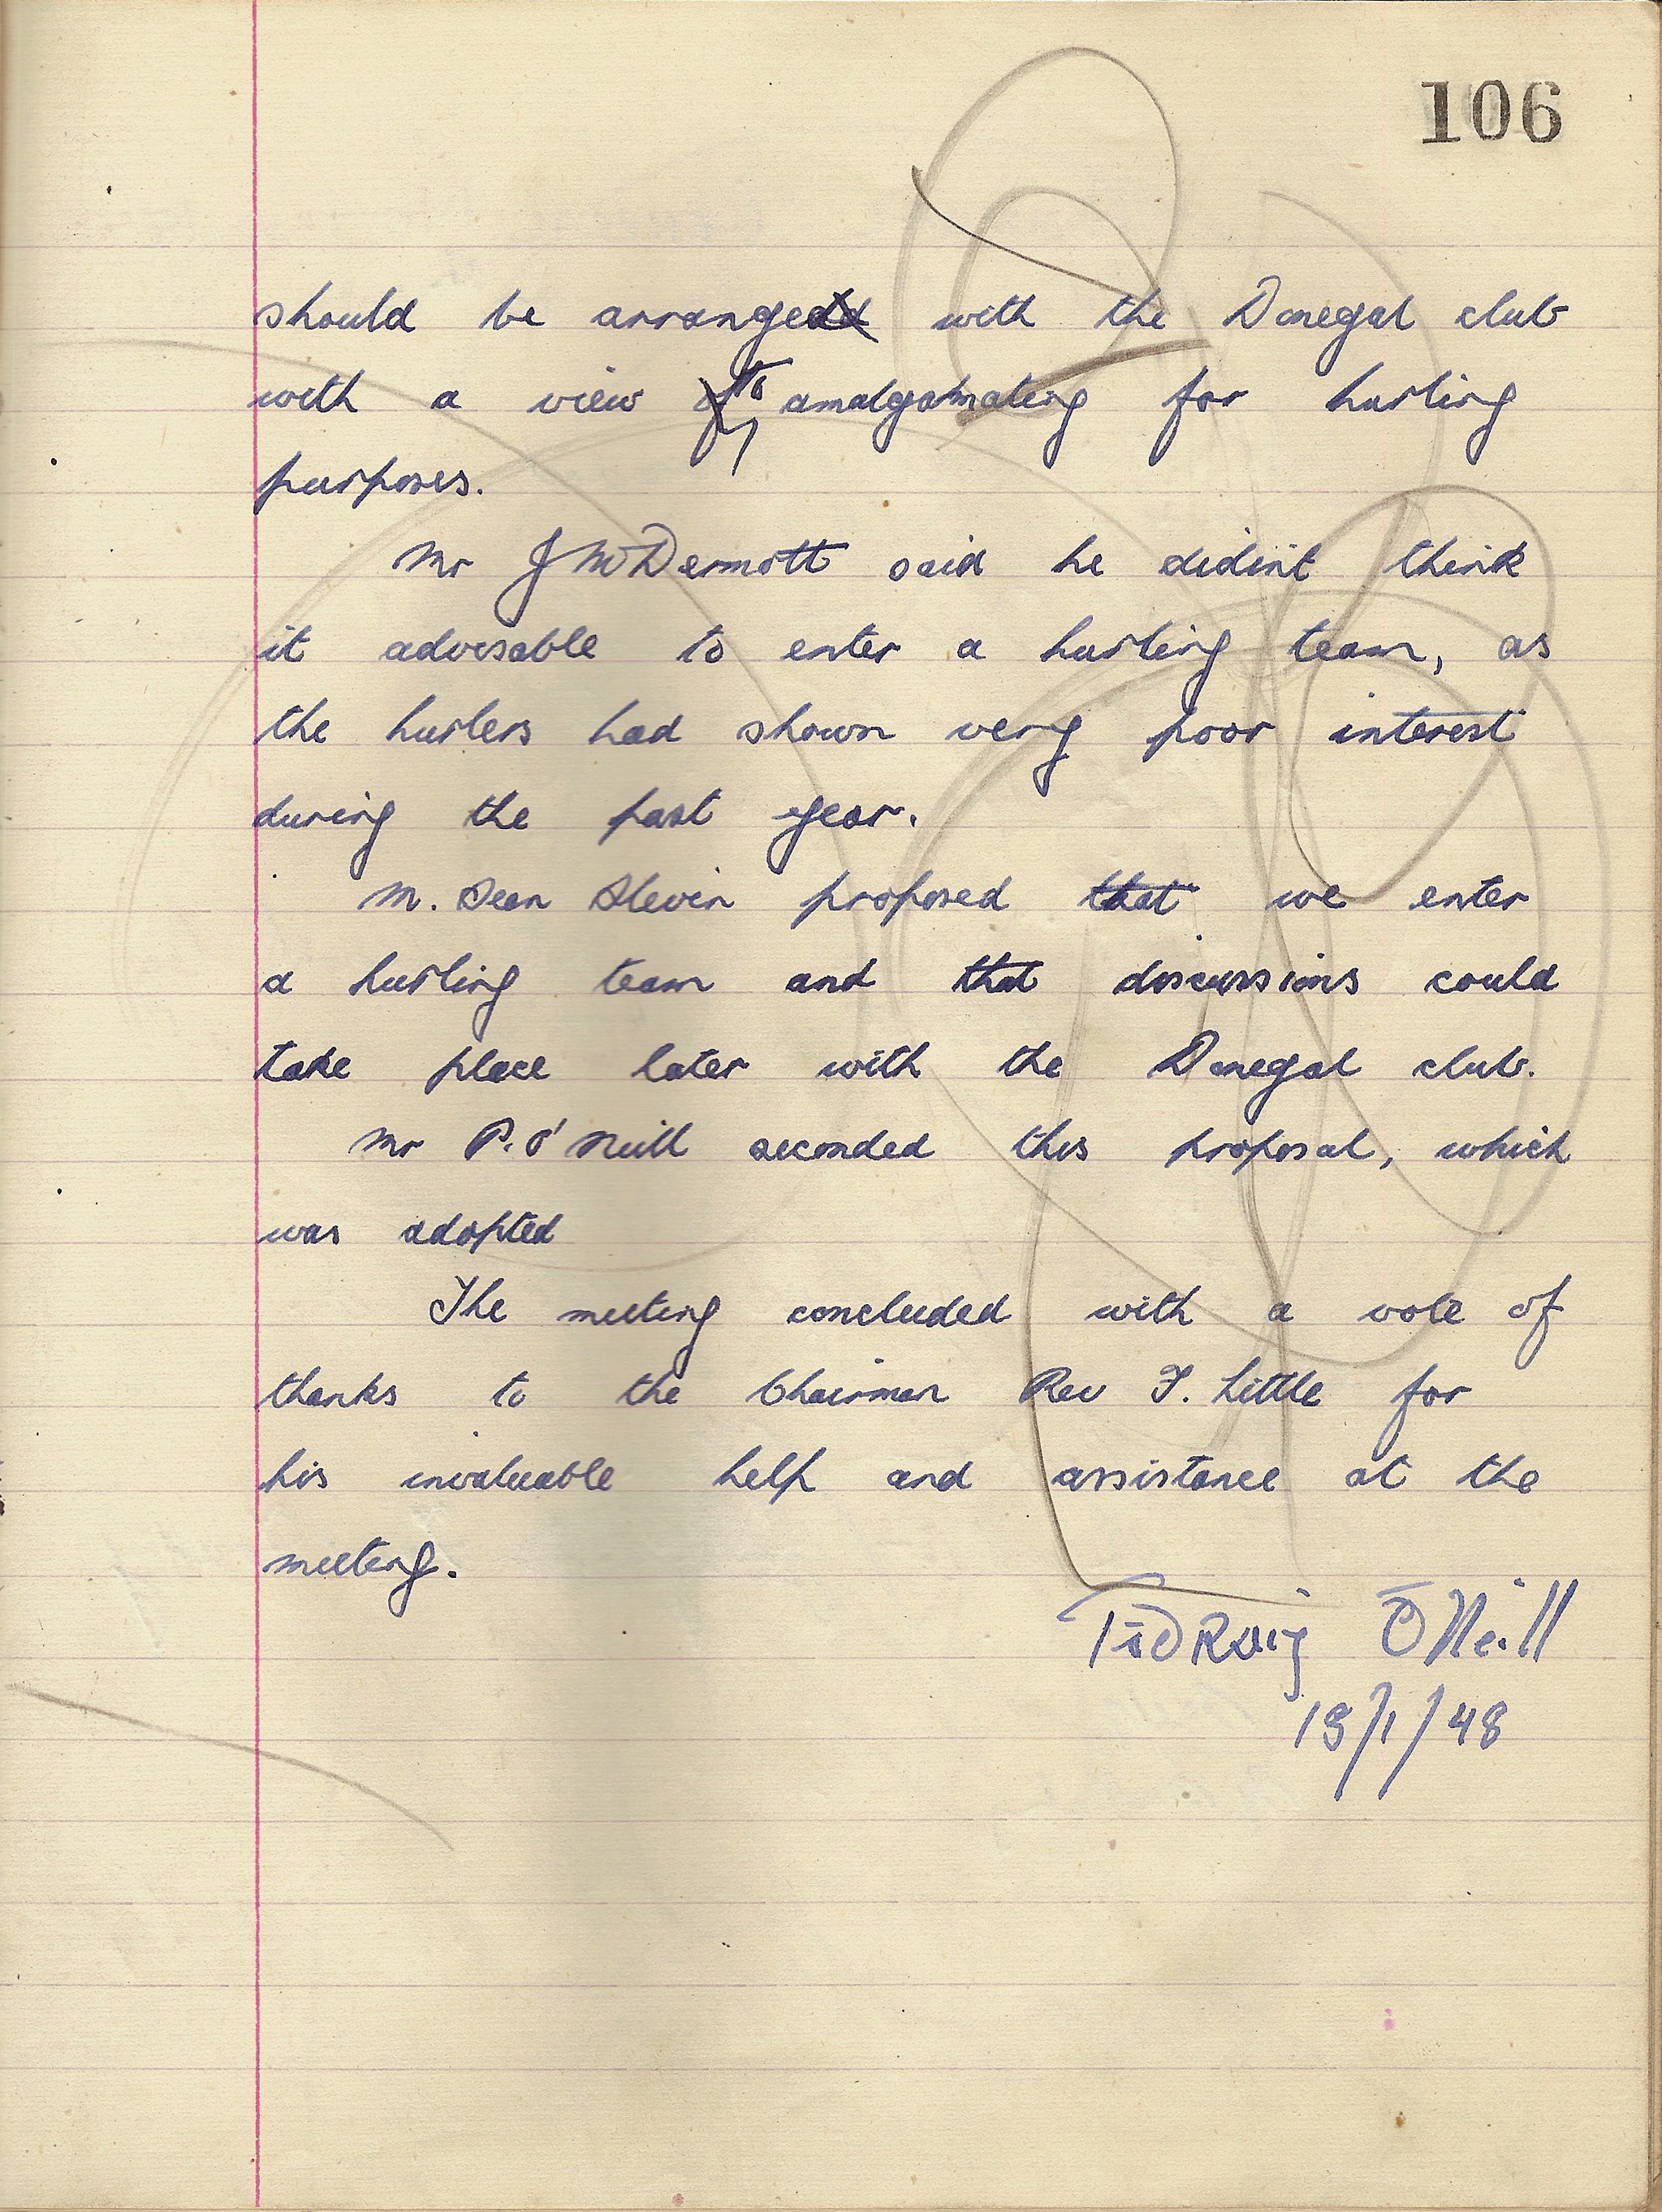 106
should be arranged with the Donegal club
with a view to amalgamating for hurling
purposes.
Mr J McDermott said he didint think
it advisable to enter a hurling team, as
the hurlers had shown very poor interest
during the past year.
M. Sean Slevin proposed that we enter
a hurling team and that discussions could
take place later with the Donegal club.
Mr P. O'Neill seconded this proposal, which
was adopted
The meeting concluded with a vote of
thanks to the Chairman Rev F. Little for
his invaluable help and assistance at the
meeting.
O'Neill
/1/48